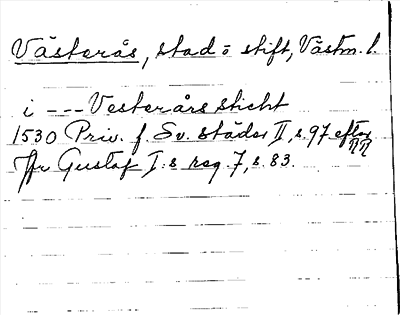 Västerås, stad o stift, Västm. l.
i --- Vesterårs sticht
1530 Priv. f. Sv. städer II, s. 97 efter
fr Gustaf I:s reg. 7, s. 83.